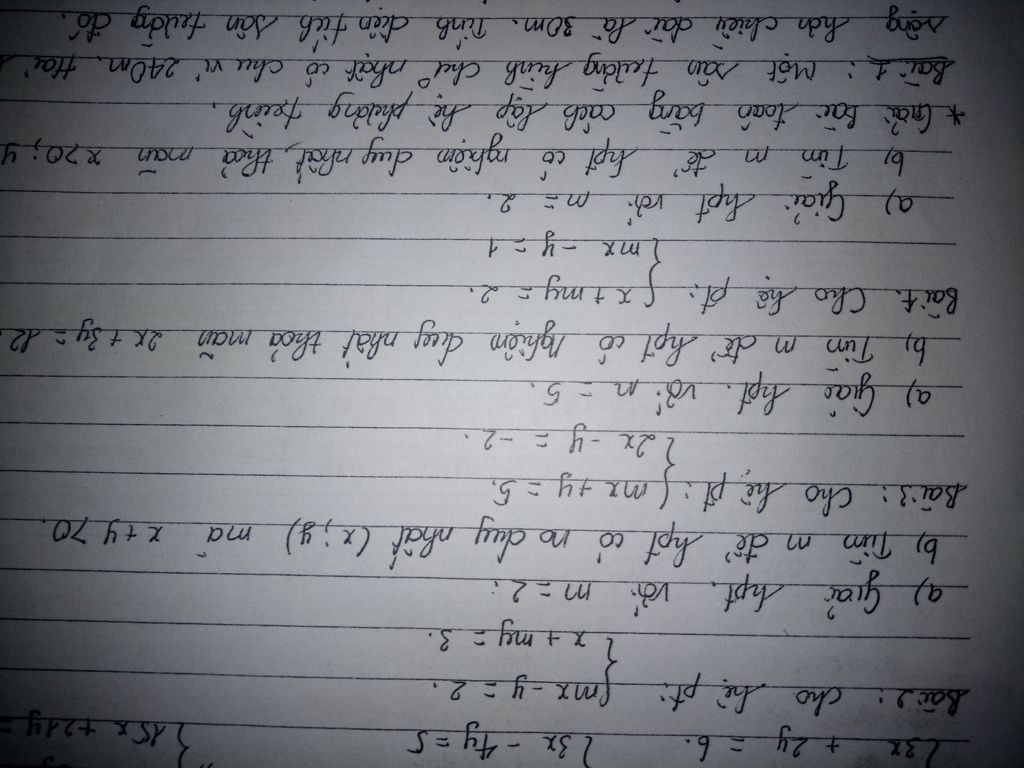 {3x + 2y = 6. {3x - 4y = 5 {15x + 21y =
Bài 2: Cho hệ pt: {mx - y = 2.
x + my = 3.
a) Giải hpt. với m = 2.
b) Tìm m để hpt có no duy nhất (x; y) mà x + y > 0.
Bài 3: Cho hệ pt: {mx + y = 5.
2x - y = -2.
a) Giải hpt. với m = 5.
b) Tìm m để hpt có Nghiệm duy nhất thoả mãn 2x + 3y = 12.
Cho hệ pt: {x + my = 2.
mx - y = 1
a) Giải hpt với m = 2.
b) Tìm m để hpt có nghiệm duy nhất, thoả mãn x > 0; y
* Giải bài toán bằng cách lập hệ phương trình.
Bài 1: Một sân trường hình chữ nhật có chu vi 240m. Hai
rộng hơn chiều dài là 30m. Tính diện tích sân trường đó.